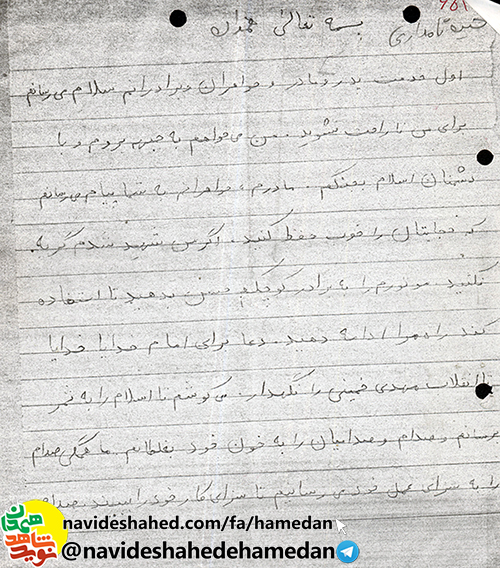 بسمه تعالی همدان
اول خدمت پدر و مادر و خواهران و برادرانم سلام می رسانم
برای من ناراحت نشوید. من می خواهم به جبهه بروم و با
دشمنان اسلام بجنگم. مادرم، خواهرانم به شما پیام می رسانم
که حجابتان را خوب حفظ کنید. اگر من شهید شدم گریه
نکنید. موتورم را به برادر کوچکم بدهید تا استفاده
کند راه مرا ادامه دهید. دعا برای امام خدایا خدایا
تا انقلاب مهدی خمینی را نگهدار. می کوشم تا اسلام را به ثمر
برسانم و صدام و صدامیان را به خون خود بغلطانم. ما همگی صدام
را به سزای عمل خود می رسانیم تا سزای کار خود را ببیند. صدام
navideshahed.com/fa/hamedan
@navideshahedehamedan
نوید شاهد همدان